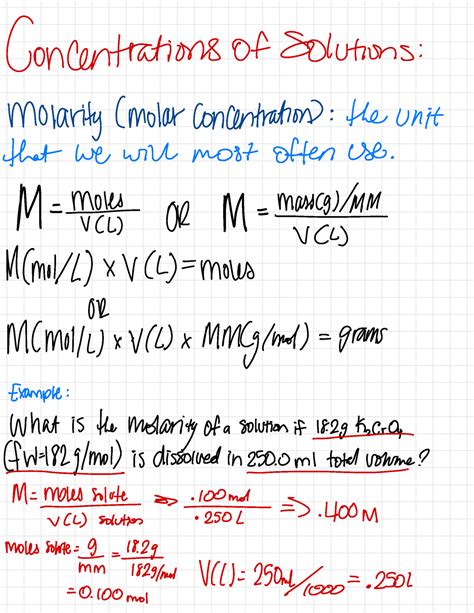 Concentrations of Solutions:
Molarity (molar concentration): the unit
that we will most often use.
M = moles / V(L) OR M = mass(g)/MM / V(L)
M(mol/L) × V(L) = moles
OR
M(mol/L) × V(L) × MM(g/mol) = grams
Example:
What is the molarity of a solution if 18.2g K₂CrO₄
(fw=182 g/mol) is dissolved in 250.0 ml total volume?
M = moles solute / V(L) solution => .100 mol / .250 L => .400 M
moles solute = g / mm = 18.2g / 182g/mol
= 0.100 mol
V(L) = 250mL / 1000 = .250L